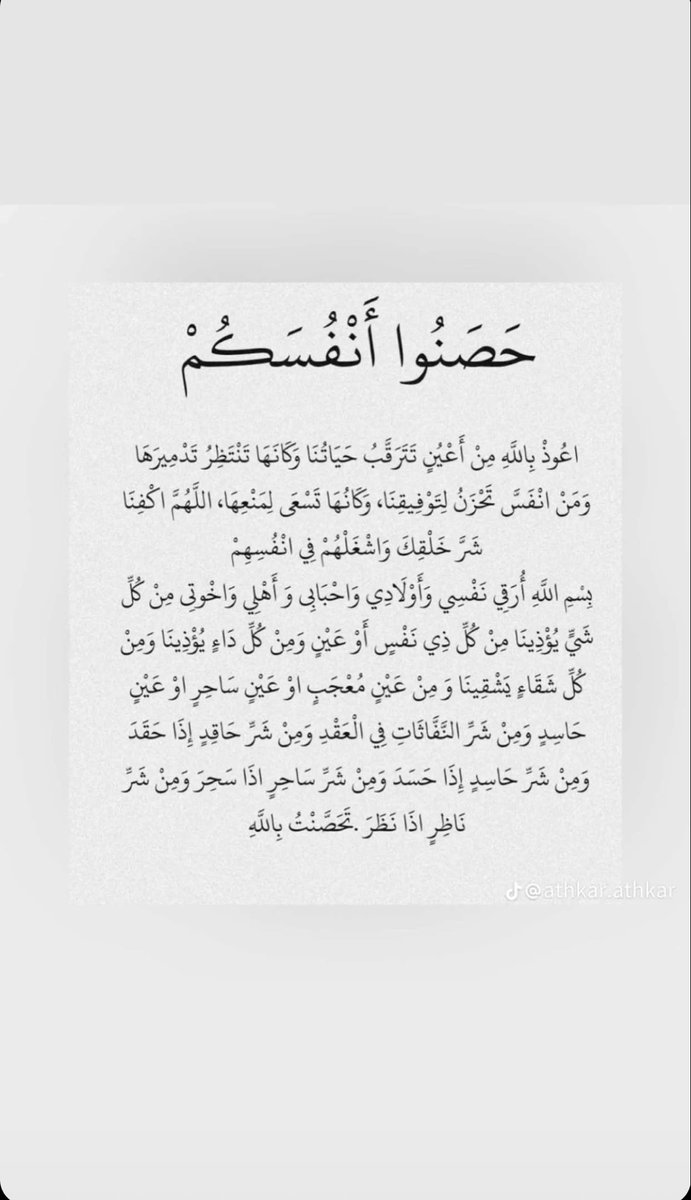 حَصَنُوا أَنْفُسَكُمْ
اعُوذْ بِاللَّهِ مِنْ أَعْيُنٍ تَتَرَقَّبُ حَيَاتُنَا وَكَانَهَا تَنْتَظِرُ تَدْمِيرَهَا
وَمَنْ انْفَسَّ تَحْزَنُ لِتَوْفِيقِنَا، وَكَانُهَا تَسْعَى لِمَنْعِهَا، اللَّهُمَّ اكْفِنَا
شَرَّ خَلْقِكَ وَاشْغَلْهُمْ فِي انْفُسِهِمْ
بِسْمِ اللَّهِ أُرَقِي نَفْسِي وَأَوْلَادِي وَاحْبَابِى وَ أَهْلِي وَاخْوتِى مِنْ كُلِّ
شَيٍّ يُؤْذِينَا مِنْ كُلِّ ذِي نَفْسٍ أَوْ عَيْنٍ وَمِنْ كُلِّ دَاءٍ يُؤْذِينَا وَمِنْ
كُلِّ شَقَاءٍ يَشْقِينَا وَ مِنْ عَيْنٍ مُعْجَبٍ اوْ عَيْنٍ سَاحِرٍ اوْ عَيْنٍ
حَاسِدٍ وَمِنْ شَرِّ النَّفَّاثَاتِ فِي الْعَقْدِ وَمِنْ شَرِّ حَاقِدٍ إِذَا حَقَدَ
وَمِنْ شَرِّ حَاسِدٍ إِذَا حَسَدَ وَمِنْ شَرِّ سَاحِرٍ اذَا سَحِرَ وَمِنْ شَرِّ
نَاظِرٍ اذَا نَظَرَ .تَحَصَّنْتُ بِاللَّهِ
@athkar.athkar